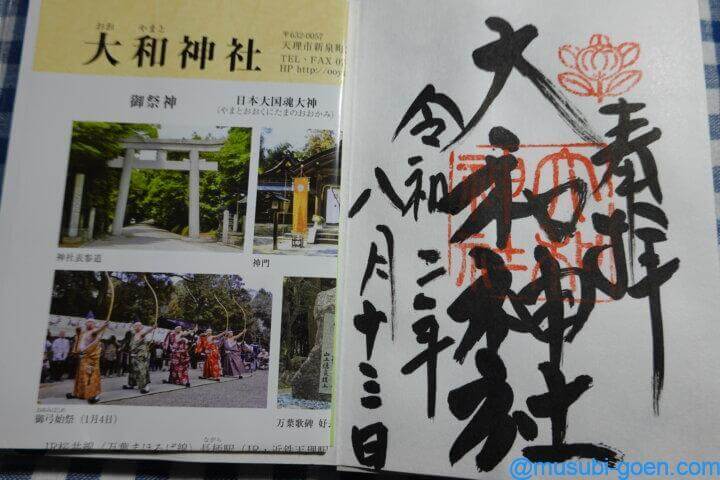 おお やまと
大和神社
〒632-0057
天理市新泉町
TEL・FAX 0
HP http://ooy
御祭神
日本大国魂大神
(やまとおおくにたまのおおかみ)
神社表参道
神門
おゆみはじめ
御弓始祭（1月4日）
万葉歌碑 好
JR桜井線（万葉まほろば線）長柄駅（JR・近鉄天理駅
ながら
奉拝
大和神社
大和神社
令和二年
八月十三日
@musubi-goen.com